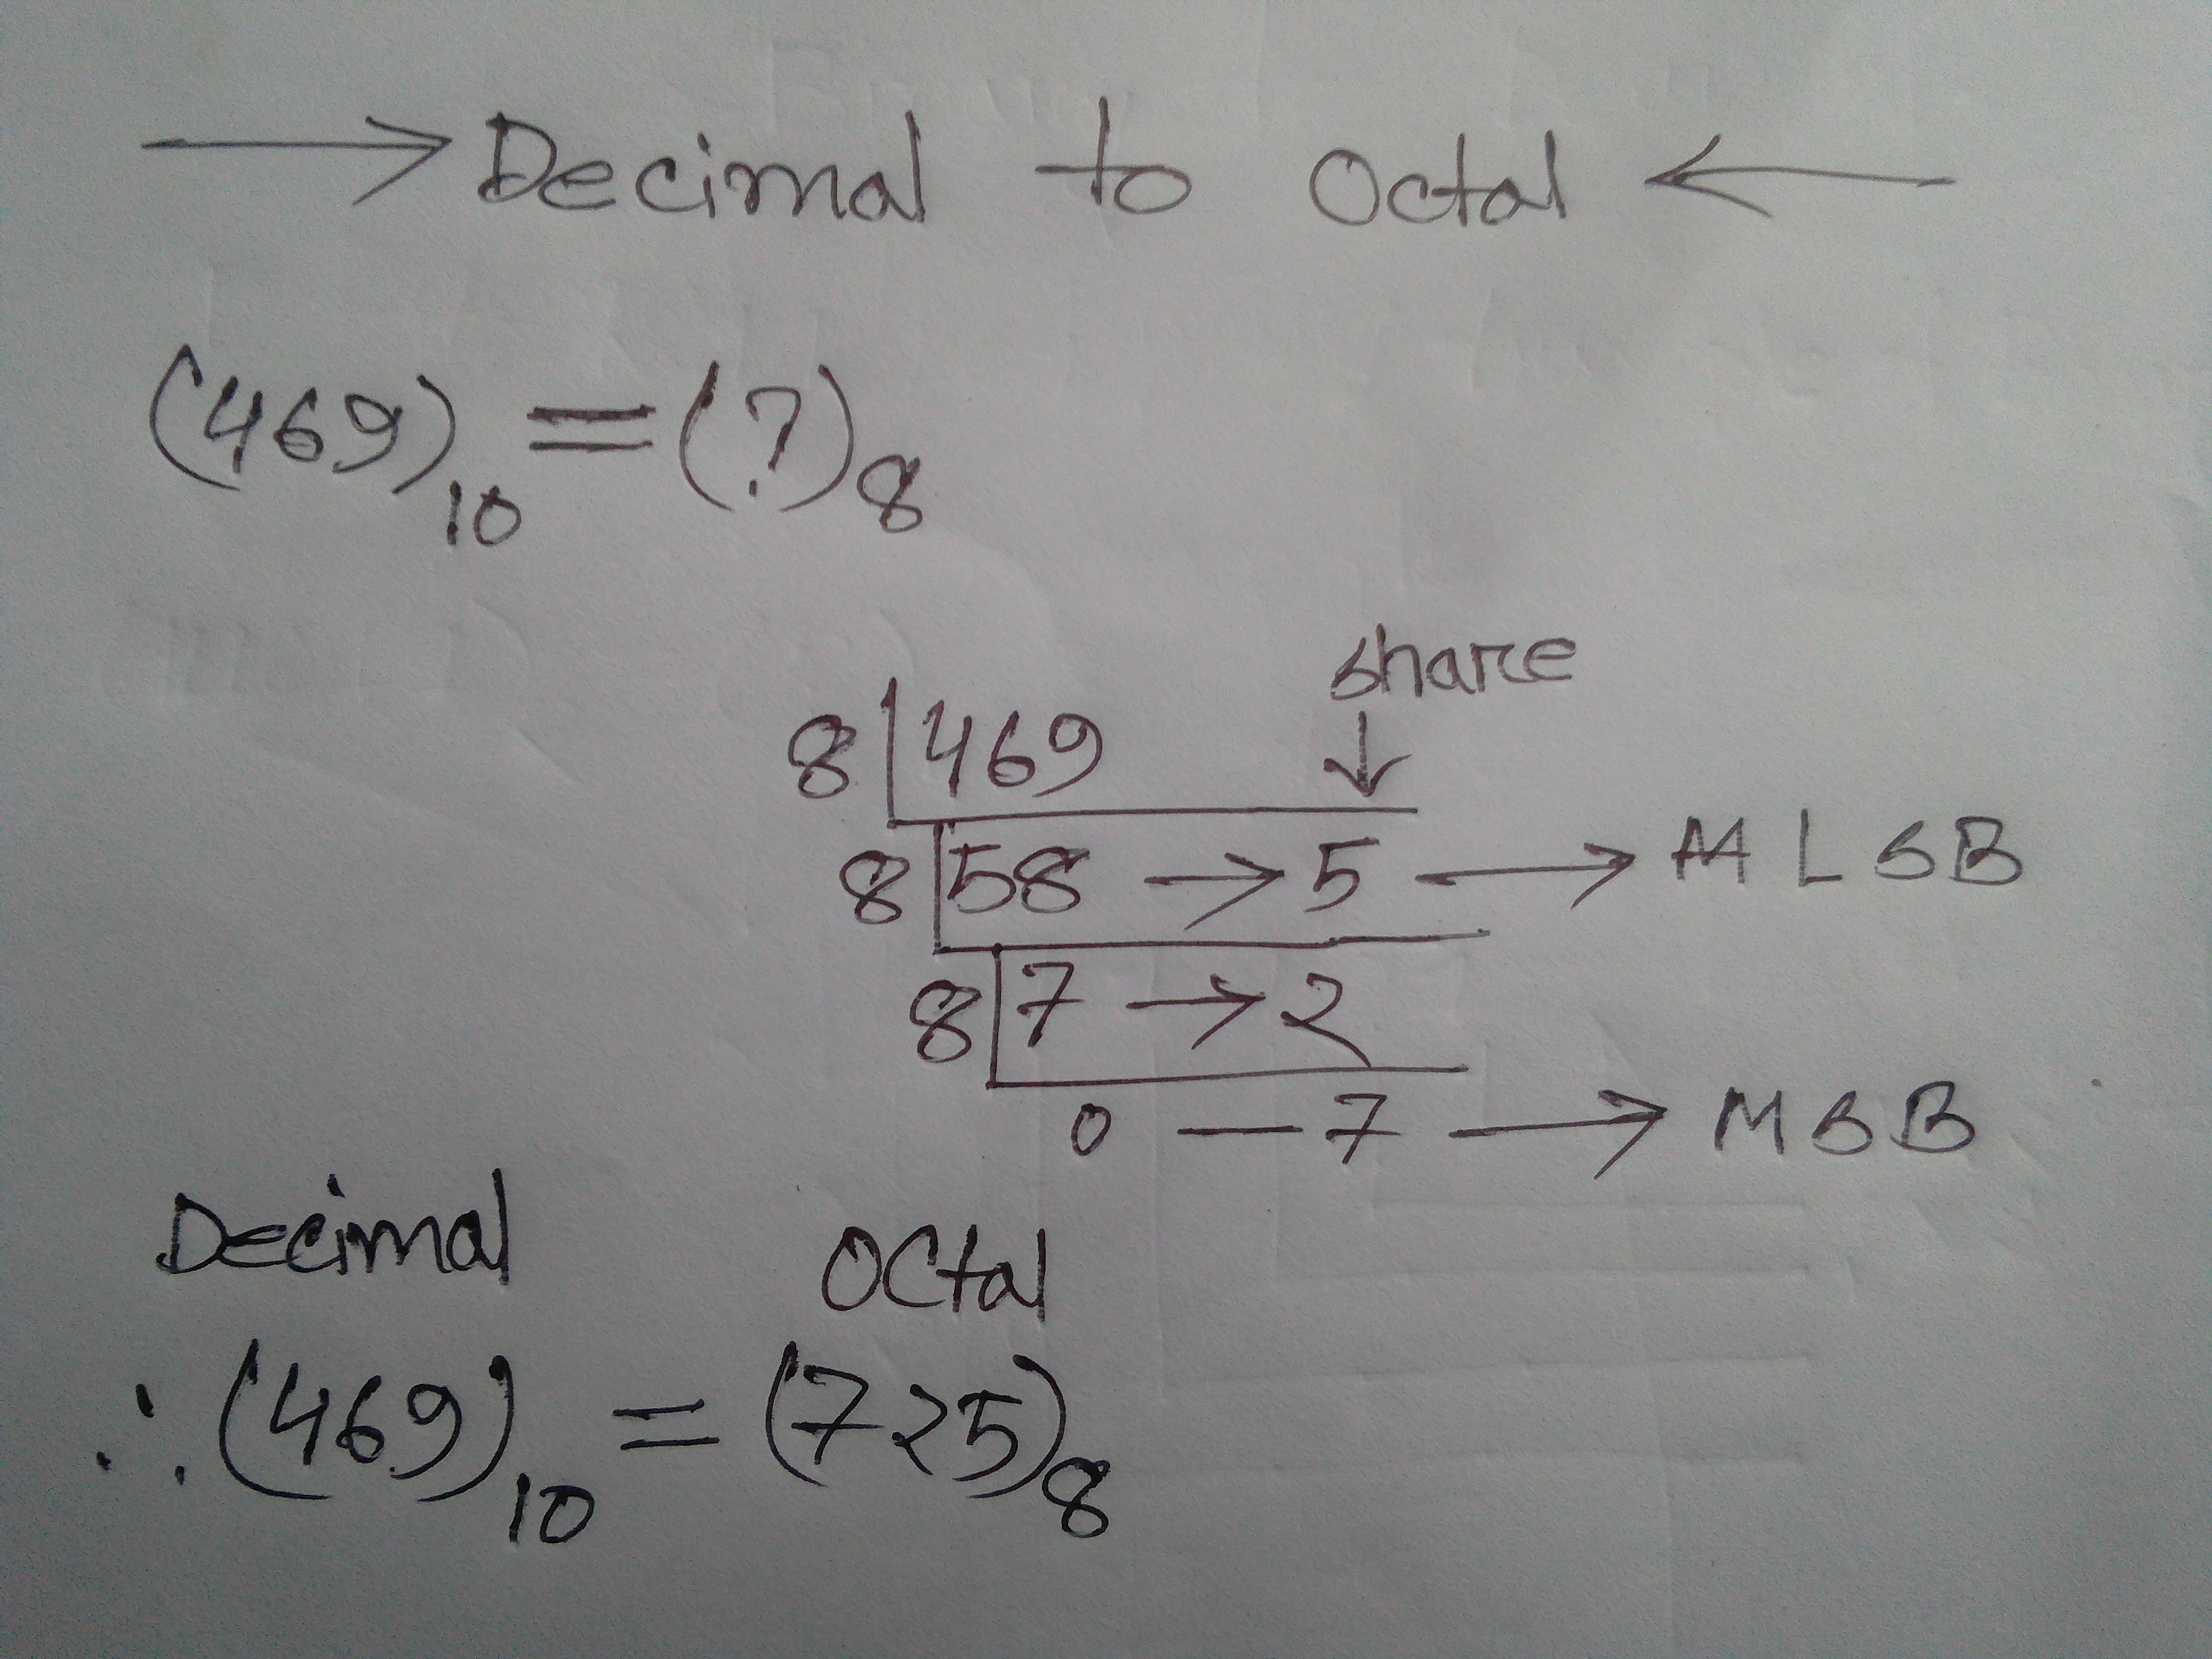 → Decimal to Octal ←
(469)₁₀ = (?)₈
share
↓
8 | 469
8 | 58 → 5 → M LSB
8 | 7 → 2
0 — 7 → MSB
Decimal Octal
∴ (469)₁₀ = (725)₈